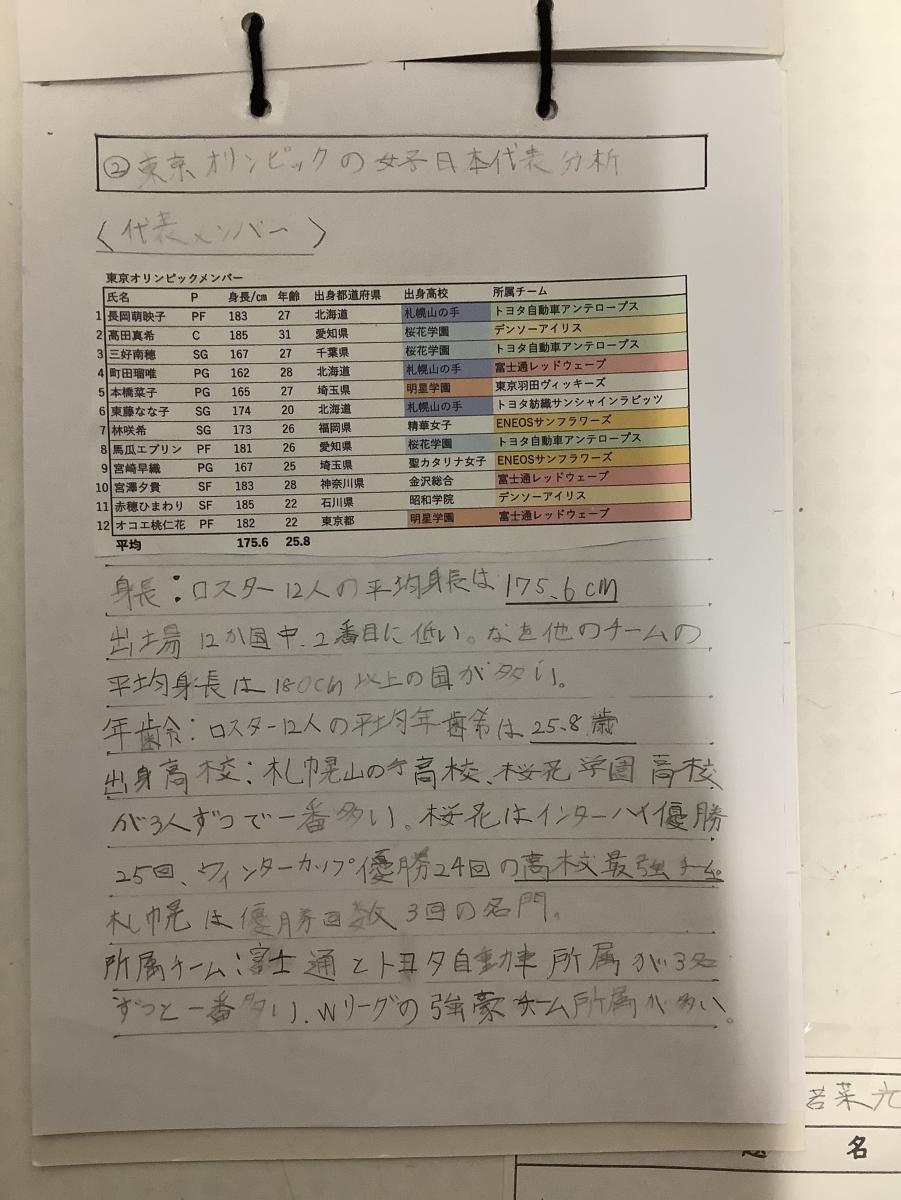 ②東京オリンピックの女子日本代表分析
〈代表メンバー〉
東京オリンピックメンバー
氏名 P 身長/㎝ 年齢 出身都道府県 出身高校 所属チーム
1 長岡萌映子 PF 183 27 北海道 札幌山の手 トヨタ自動車アンテロープス
2 髙田真希 C 185 31 愛知県 桜花学園 デンソーアイリス
3 三好南穂 SG 167 27 千葉県 桜花学園 トヨタ自動車アンテロープス
4 町田瑠唯 PG 162 28 北海道 札幌山の手 富士通レッドウェーブ
5 本橋菜子 PG 165 27 埼玉県 明星学園 東京羽田ヴィッキーズ
6 東藤なな子 SG 174 20 北海道 札幌山の手 トヨタ紡織サンシャインラビッツ
7 林咲希 SG 173 26 福岡県 精華女子 ENEOSサンフラワーズ
8 馬瓜エブリン PF 181 26 愛知県 桜花学園 トヨタ自動車アンテロープス
9 宮崎早織 PG 167 25 埼玉県 聖カタリナ女子 ENEOSサンフラワーズ
10 宮澤夕貴 SF 183 28 神奈川県 金沢総合 富士通レッドウェーブ
11 赤穂ひまわり SF 185 22 石川県 昭和学院 デンソーアイリス
12 オコエ桃仁花 PF 182 22 東京都 明星学園 富士通レッドウェーブ
平均 175.6 25.8
身長：ロスター12人の平均身長は175.6cm
出場12か国中、2番目に低い。なお他のチームの
平均身長は180cm以上の国が多い。
年齢：ロスター12人の平均年齢は25.8歳
出身高校：札幌山の手高校、桜花学園高校
が3人ずつで一番多い。桜花はインターハイ優勝
25回、ウィンターカップ優勝24回の高校最強チーム。
札幌は優勝回数3回の名門。
所属チーム：富士通とトヨタ自動車所属が3名
ずつと一番多い、Wリーグの強豪チーム所属が多い。
若菜
名